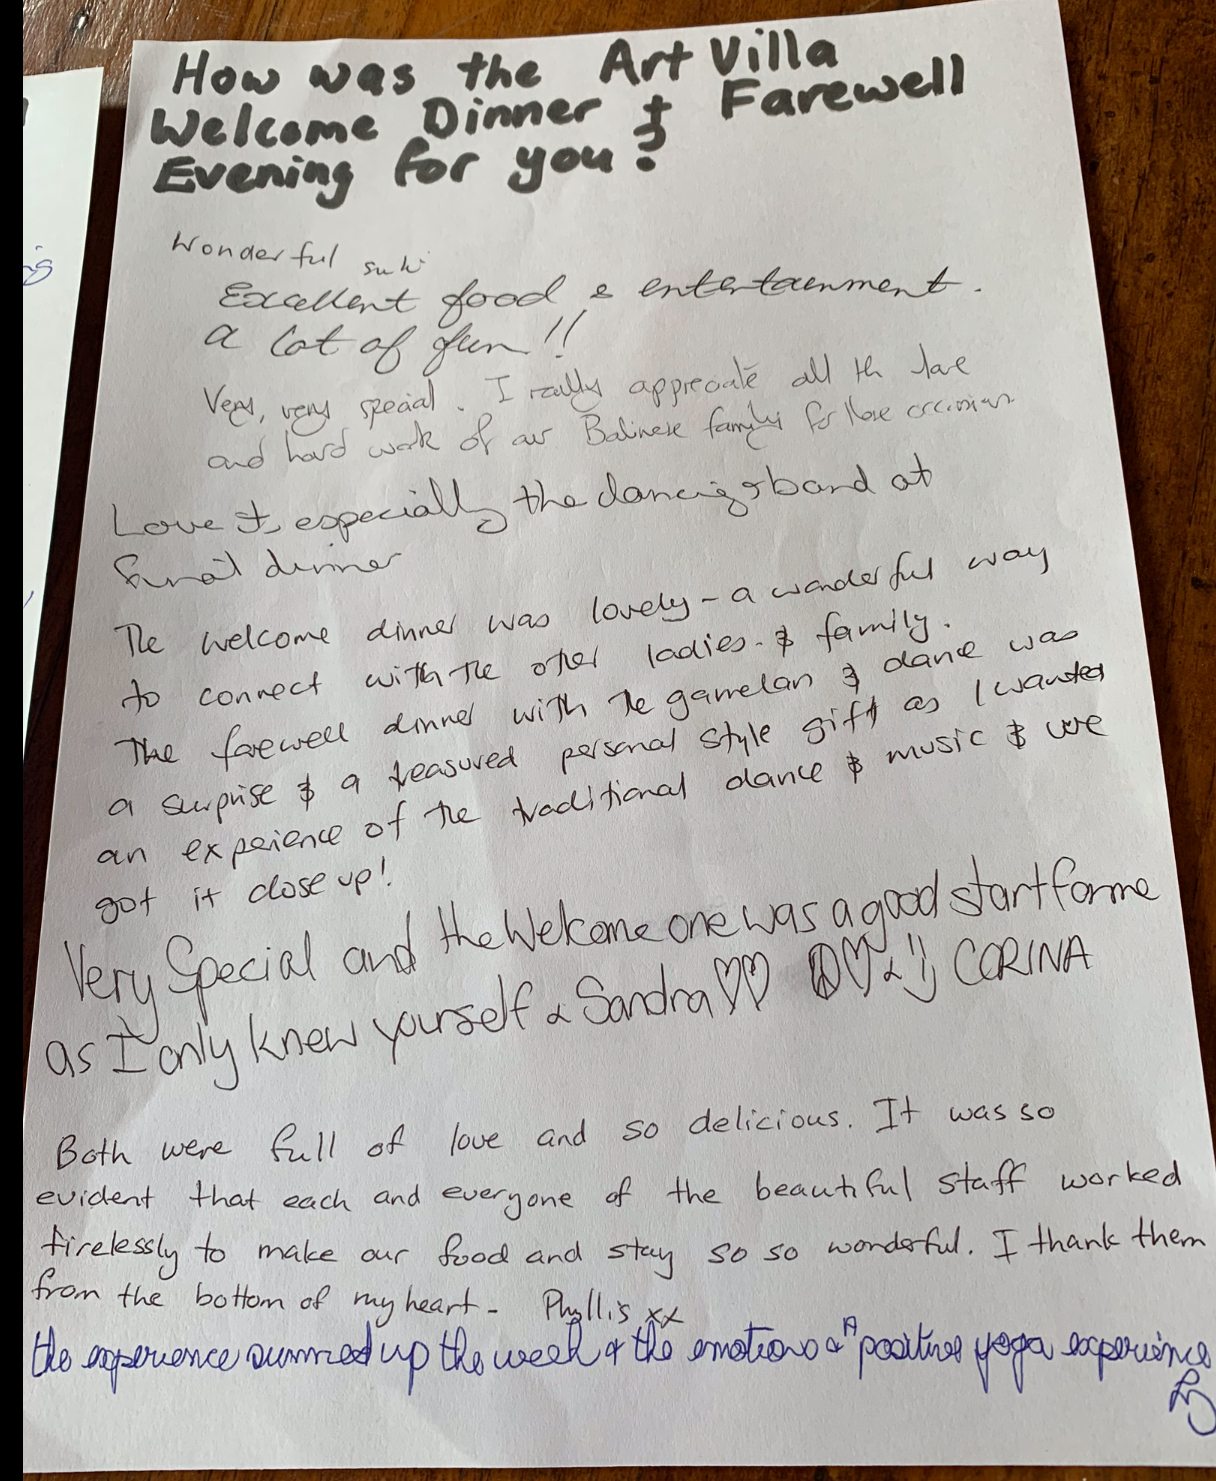 How was the Art Villa
Welcome Dinner & Farewell
Evening for you?
Wonderful
Excellent food & entertainment.
a lot of fun!!
Very, very special. I really appreciate all the love
and hard work of our Balinese family for these occasions
Love it, especially the dancing & band at
final dinner
The welcome dinner was lovely - a wonderful way
to connect with the other ladies - & family.
The farewell dinner with the gamelan & dance was
a surprise & a treasured personal style gift as I wanted
an expeience of the traditional dance & music & we
got it close up!
Very Special and the Welcome one was a good start for me
as I only knew yourself & Sandra ♡♡ ☮♡& :) CORINA
Both were full of love and so delicious. It was so
evident that each and everyone of the beautiful staff worked
tirelessly to make our food and stay so so wonderful. I thank them
from the bottom of my heart - Phyllis xx
the experience summed up the week & the emotions & A positive yoga experience